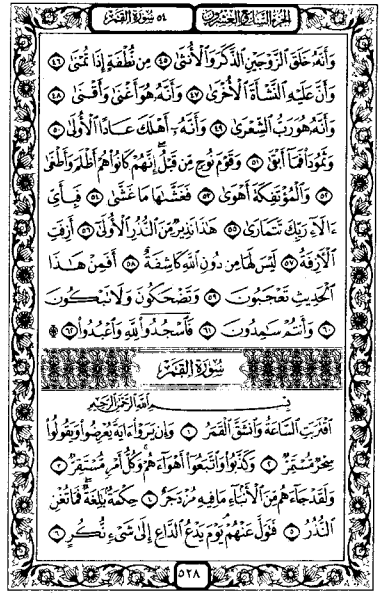 الجزء السابع والعشرون ٥٤ سورة القمر
وَأَنَّهُ خَلَقَ ٱلزَّوْجَيْنِ ٱلذَّكَرَ وَٱلْأُنثَىٰ ٤٥ مِن نُّطْفَةٍ إِذَا تُمْنَىٰ ٤٦
وَأَنَّ عَلَيْهِ ٱلنَّشْأَةَ ٱلْأُخْرَىٰ ٤٧ وَأَنَّهُ هُوَ أَغْنَىٰ وَأَقْنَىٰ ٤٨
وَأَنَّهُ هُوَ رَبُّ ٱلشِّعْرَىٰ ٤٩ وَأَنَّهُۥٓ أَهْلَكَ عَادًا ٱلْأُولَىٰ ٥٠
وَثَمُودَا۟ فَمَآ أَبْقَىٰ ٥١ وَقَوْمَ نُوحٍ مِّن قَبْلُ إِنَّهُمْ كَانُوا۟ هُمْ أَظْلَمَ وَأَطْغَىٰ
٥٢ وَٱلْمُؤْتَفِكَةَ أَهْوَىٰ ٥٣ فَغَشَّىٰهَا مَا غَشَّىٰ ٥٤ فَبِأَىِّ
ءَالَآءِ رَبِّكَ تَتَمَارَىٰ ٥٥ هَٰذَا نَذِيرٌ مِّنَ ٱلنُّذُرِ ٱلْأُولَىٰٓ ٥٦ أَزِفَتِ
ٱلْـَٔازِفَةُ ٥٧ لَيْسَ لَهَا مِن دُونِ ٱللَّهِ كَاشِفَةٌ ٥٨ أَفَمِنْ هَٰذَا
ٱلْحَدِيثِ تَعْجَبُونَ ٥٩ وَتَضْحَكُونَ وَلَا تَبْكُونَ
٦٠ وَأَنتُمْ سَٰمِدُونَ ٦١ فَٱسْجُدُوا۟ لِلَّهِ وَٱعْبُدُوا۟ ۩ ٦٢
سُورَةُ القَمَرِ
بِسْمِ ٱللَّهِ ٱلرَّحْمَٰنِ ٱلرَّحِيمِ
ٱقْتَرَبَتِ ٱلسَّاعَةُ وَٱنشَقَّ ٱلْقَمَرُ ١ وَإِن يَرَوْا۟ ءَايَةً يُعْرِضُوا۟ وَيَقُولُوا۟
سِحْرٌ مُّسْتَمِرٌّ ٢ وَكَذَّبُوا۟ وَٱتَّبَعُوٓا۟ أَهْوَآءَهُمْ وَكُلُّ أَمْرٍ مُّسْتَقِرٌّ ٣
وَلَقَدْ جَآءَهُم مِّنَ ٱلْأَنۢبَآءِ مَا فِيهِ مُزْدَجَرٌ ٤ حِكْمَةٌۢ بَٰلِغَةٌ فَمَا تُغْنِ
ٱلنُّذُرُ ٥ فَتَوَلَّ عَنْهُمْ يَوْمَ يَدْعُ ٱلدَّاعِ إِلَىٰ شَىْءٍ نُّكُرٍ ٦
٥٢٨